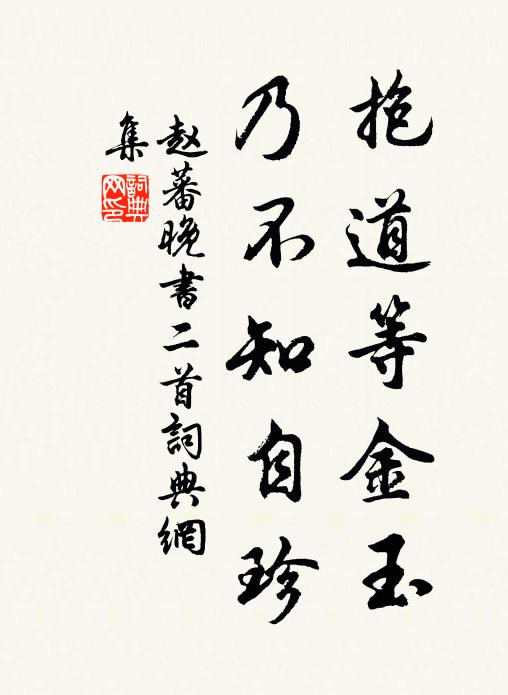 抱道等金玉
乃不知自珍
赵蕃晚書二首詞典網
集
詞典网印